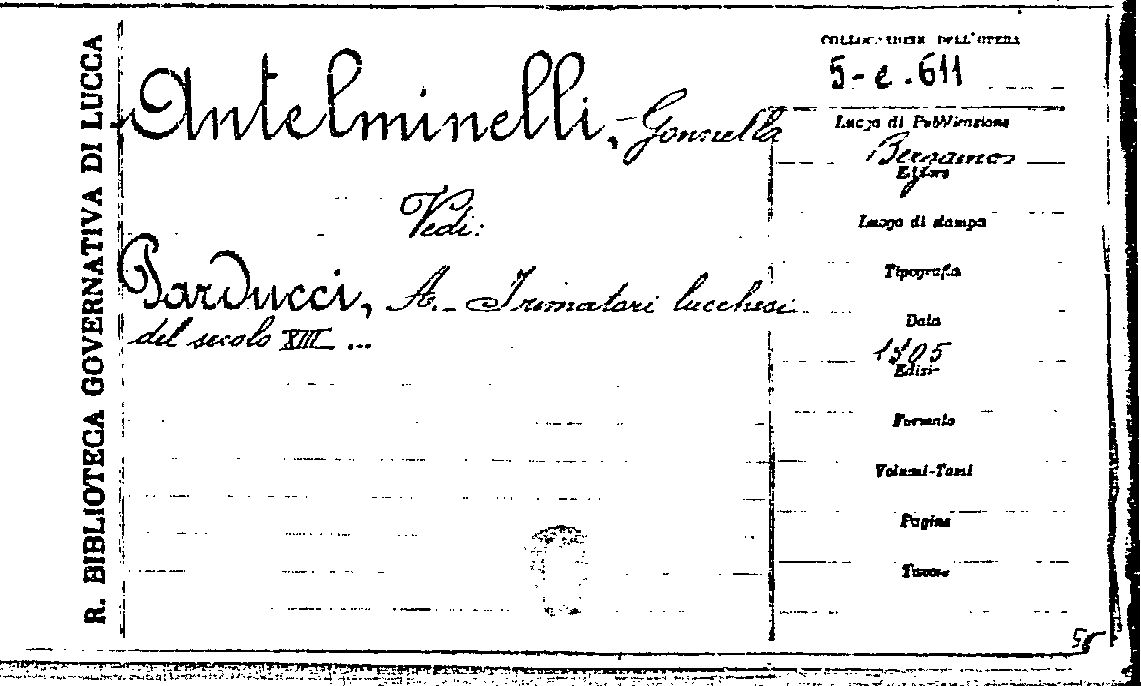 R. BIBLIOTECA GOVERNATIVA DI LUCCA
Antelminelli, - Gonnella
Vedi:
Parducci, A. - I rimatori lucchesi
del secolo XIII ...
COLLOCAZIONE DELL'OPERA
5-e.611
Luogo di Pubblicazione
Bergamo
Editore
Luogo di stampa
Tipografia
Data
1905
Ediz.
Formato
Volumi-Tomi
Pagine
Tavole